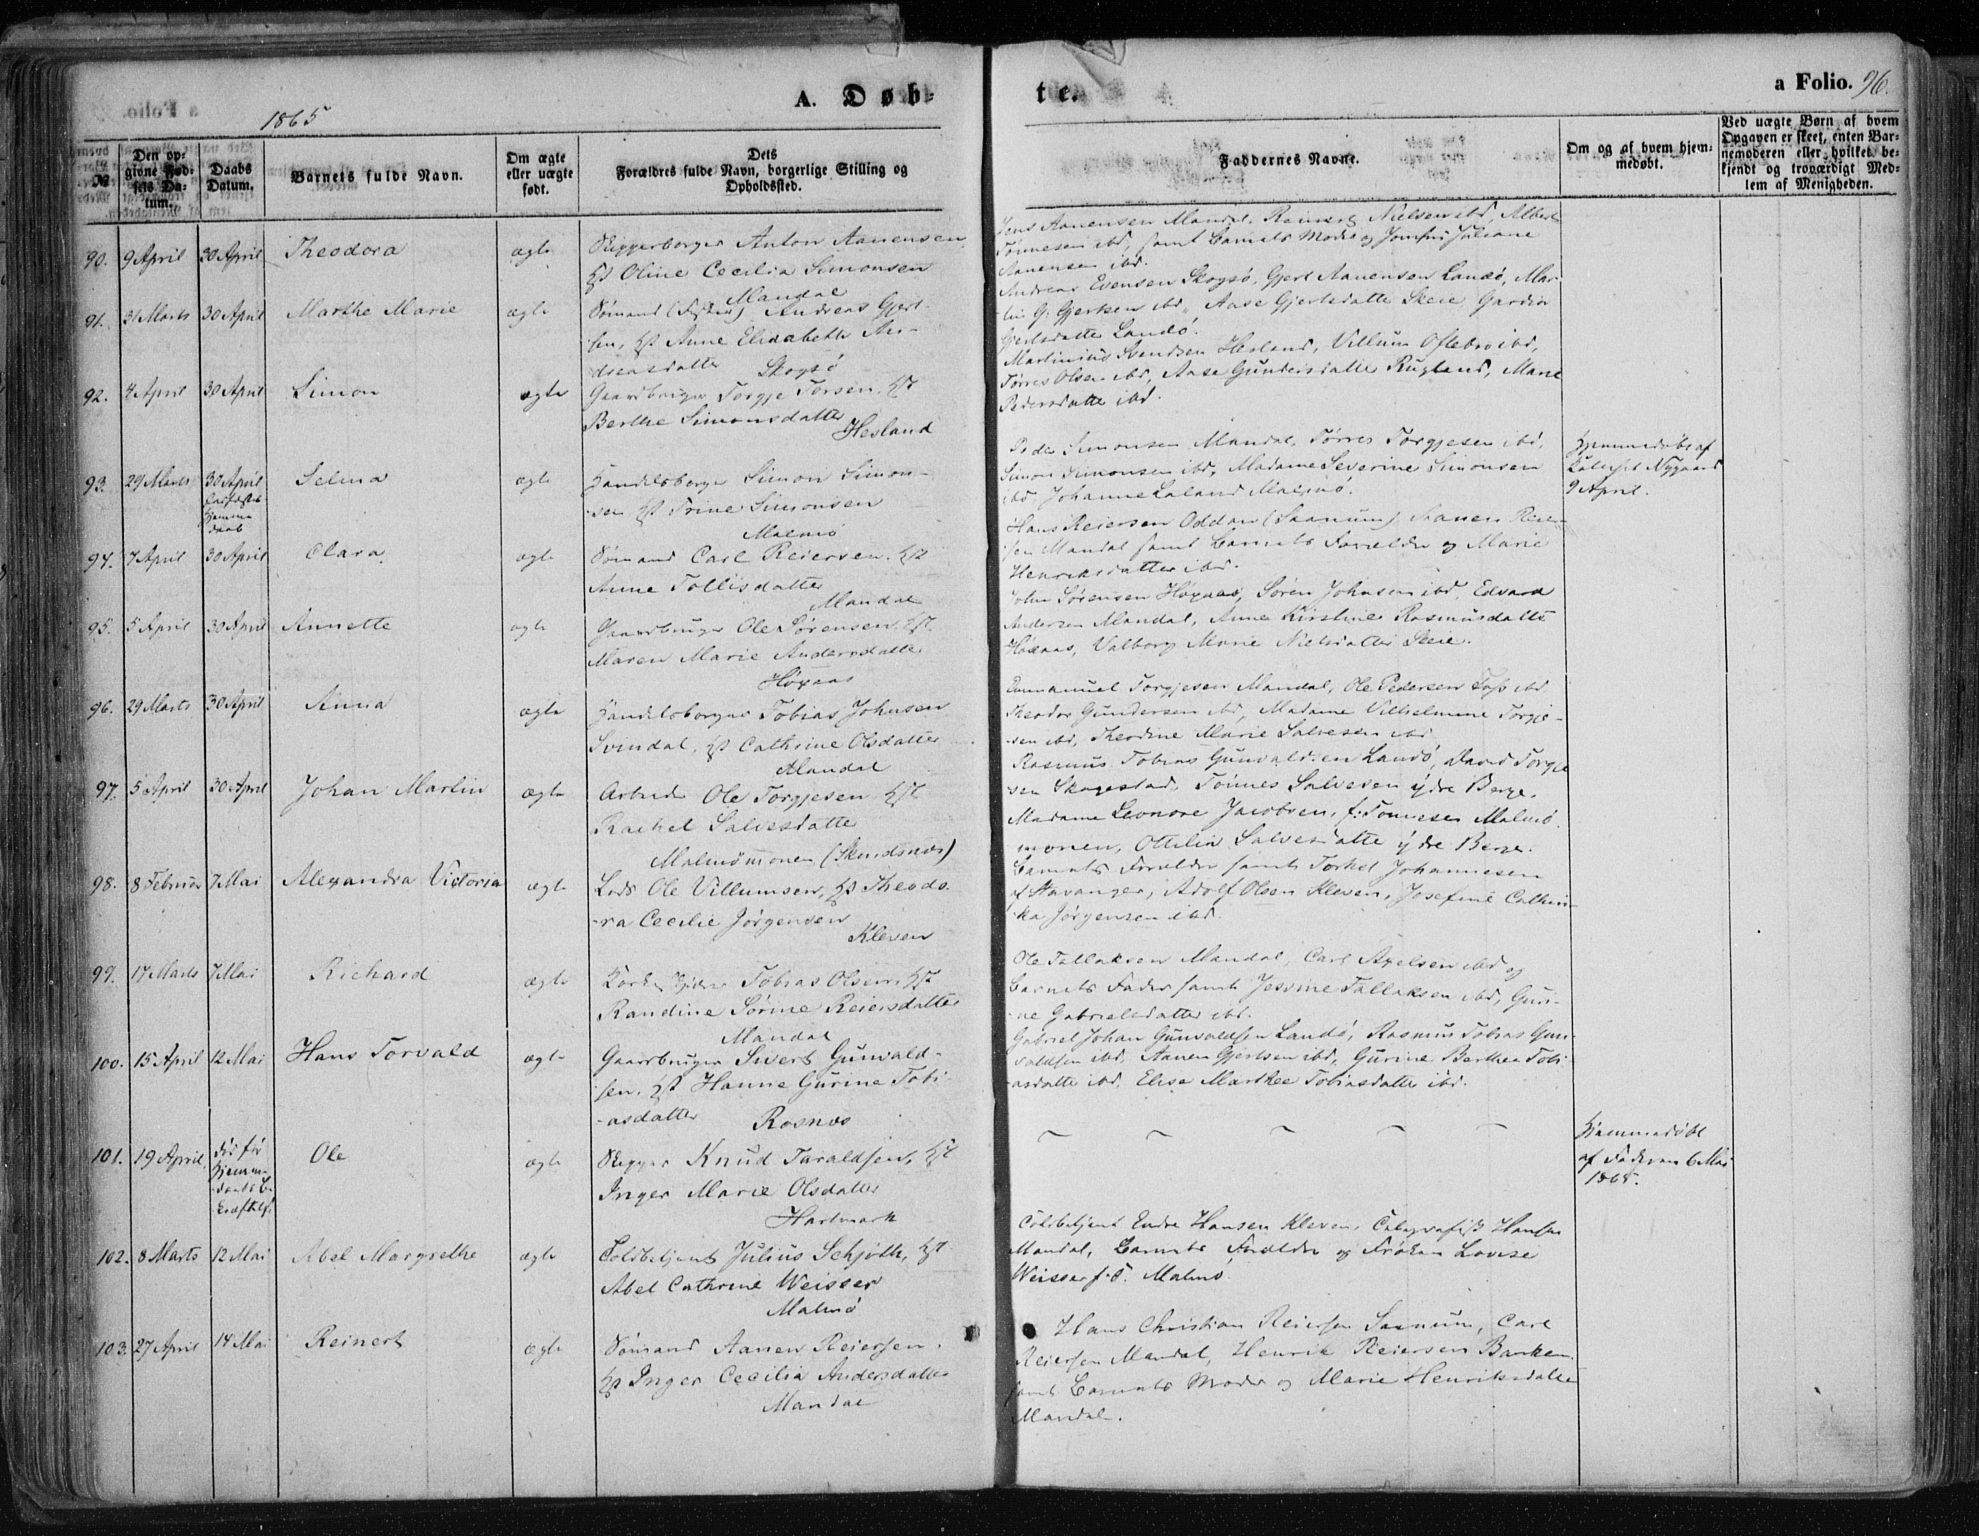 1865
A. Døb-
te.
a Folio. 96.
№
Den op-
givne Fød-
sels Da-
tum.
Daabs
Datum.
Barnets fulde Navn.
Om ægte
eller uægte
født.
Dets
Forældres fulde Navn, borgerlige Stilling og
Opholdssted.
Faddernes Navne.
Om og af hvem hjem-
medøbt.
Ved uægte Børn af hvem
Opgaven er skeet, enten Bar-
nemoderen eller hvilket be-
kjendt og troværdigt Med-
lem af Menigheden.
90. 9 April 30 April Theodora ægte
Skipperborger Anton Aanensen
Hst Oline Cecilia Simonsen
Mandal
Jens Aanensen Mandal, Reinert Nielsen ibd, Albert
Tønnesen ibd, samt Barnets Moder og Jomfru Juliane
Aanensen ibd.
91. 31 Marts 30 April Marthe Marie ægte
Sømand Andreas Gjert-
sen, Hst Anne Elisabeth An-
dreasdatter Skogsø
Andreas Evensen Skogsø, Gjert Aanensen Landø, Mar-
tin G. Gjertsen ibd, Aase Gjertsdatter Skeie
Gjertsdatter Landø.
92. 4 April 30 April Simon ægte
Gaardbruger Torgje Torsen, Hst
Berthe Simonsdatter
Hesland
Martinius Svendsen Hesland, Villum Oflebro ibd,
Tørres Olsen ibd, Aase Gundersdatter Rugland, Marie
Pedersdatter ibd.
93. 29 Marts 30 April Selma ægte
Handelsborger Simon Simon-
sen Hst Trine Simonsen
Malmø
Peder Simonsen Mandal, Tørres Torgjesen ibd,
Simon Simonsen ibd, Madame Severine Simonsen
ibd Johanne Laland Malmø.
Hjemmedøbt af
Nygaard
9 April.
94. 7 April 30 April Clara ægte
Sømand Carl Reiersen, Hst
Anne Tollisdatter
Mandal
Hans Reiersen Oddan (Saanum) Aanen Reier-
sen Mandal samt Barnets Forældre og Marie
Henriksdatter ibd.
95. 5 April 30 April Annette ægte
Gaardbruger Ole Sørensen, Hst
Maren Marie Andersdatter
Høxaas
John Sørensen Høxaas, Søren Johnsen ibd, Edvard
Andersen Mandal, Anne Kirstine Rasmusdatter
Høxaas, Valborg Marie Nielsdatter Skeie.
96. 29 Marts 30 April Anna ægte
Handelsborger Tobias Johnsen
Svindal, Hst Cathrine Olsdatter
Mandal
Emanuel Torgjesen Mandal, Ole Pedersen Foss ibd
Theodor Gundersen ibd, Madame Vilhelmine Torgje-
sen ibd, Theodine Marie Salvesen ibd
97. 5 April 30 April Johan Martin ægte
Arbeider Ole Torgjesen, Hst
Rachel Salvesdatter
Malmømonen (Skindsnæs)
Rasmus Tobias Gunvaldsen Landø, David Torgje
sen Skogestad, Tønnes Salvesen ydre Berge.
Madame Leonore Jacobsen, f: Tønnesen Malmø
monen, Ottilia Salvesdatter ydre Berge.
98. 8 Februar 7 Mai Alexandra Victoria ægte
Lods Ole Villumsen, Hst Theodo-
ra Cecilie Jørgensen
Kleven
Barnets Forældre samt Torkel Johannesen
af Stavanger, Adolf Olsen Kleven, Josefine Cathin-
ka Jørgensen ibd.
99. 17 Marts 7 Mai Richard ægte
Tobias Olsen, Hst
Randine Sørine Reiersdatter
Mandal
Ole Tallaksen Mandal, Carl Axelsen ibd og
Barnets Fader samt Jessine Tallaksen ibd, Guri-
ne Gabrielsdatter ibd.
100. 15 April 12 Mai Hans Torvald ægte
Gaardbruger Sivert Gunvald-
sen, Hst Hanne Gurine Tobi-
asdatter Rosnæs
Gabriel Johan Gunvaldsen Landø, Rasmus Tobias Gun-
valdsen ibd, Aanen Gjertsen ibd, Gurine Berthea Tobi-
asdatter ibd, Elise Marthee Tobiasdatter ibd.
101. 19 April Død før
Hjemme-
daabs Be-
kræftelse Ole ægte
Skipper Knud Taraldsen, Hst
Inger Marie Olsdatter
Hartmark
Hjemmedøbt
af Faderen 6 Mai
1865.
102. 8 Marts 12 Mai Abel Margrethe ægte
Toldbetjent Julius Schjøth, Hst
Abel Cathrine Weisser
Malmø
Toldbetjent Endre Hansen Kleven, Hansen
Mandal, Barnets Forældre og Frøken Lovise
Weisser f:S. Malmø
103. 27 April 14 Mai Reinert ægte
Sømand Aanen Reiersen,
Hst Inger Cecilia Andersdatter
Mandal
Hans Christian Reiersen Saanum, Carl
Reiersen Mandal, Henrik Reiersen Banken
samt Barnets Moder og Marie Henriksdatter
Mandal.